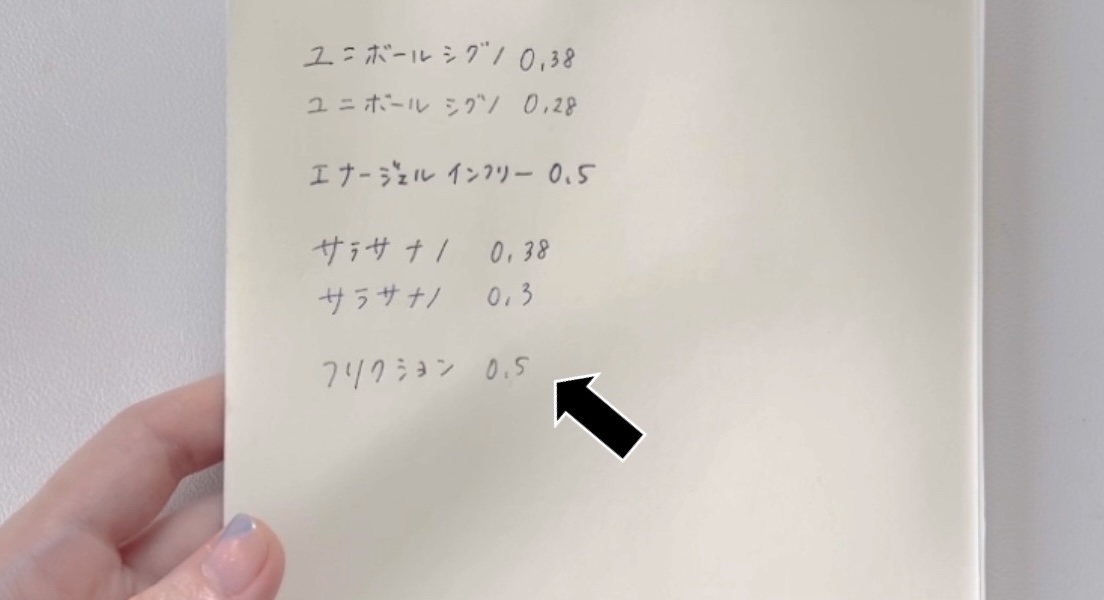 ユニボールシグノ 0.38
ユニボール シグノ 0.28
エナージェル インフリー 0.5
サラサ ナノ 0.38
サラサナノ 0.3
フリクション 0.5